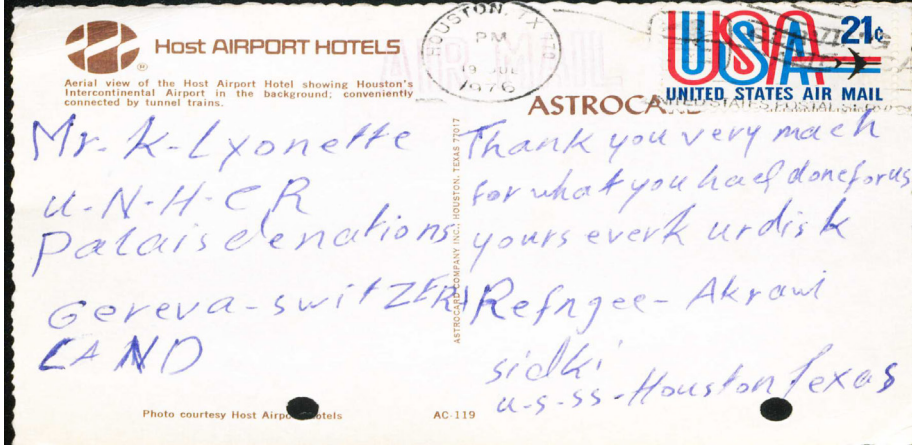 Host AIRPORT HOTELS
®
Aerial view of the Host Airport Hotel showing Houston's
Intercontinental Airport in the background; conveniently
connected by tunnel trains.
HOUSTON, TX
PM
19 JUL
1976
AIR MAIL
USA 21¢
UNITED STATES AIR MAIL
ASTROCARD
Mr. K-Lyonette
U-N-H-CR
Palais denations
Gereva-switZERLAND
LAND
ASTROCARD COMPANY INC., HOUSTON, TEXAS 77017
Thank you very mach
for what you haed done for us
yours everk urdisk
Refngee- Akrawi
sidki
U-S-SS-Houston Texas
Photo courtesy Host Airport Hotels
AC-119